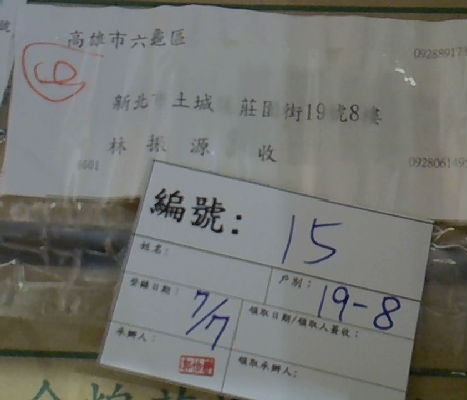 高雄市六龜區
0928891
新北市土城區 莊園街19號8樓
林振源 收
0928061495
編號: 15
姓名:
戶別: 19-8
登錄日期: 7/7
領取日期/領取人簽收:
承辦人:
領取承辦人: